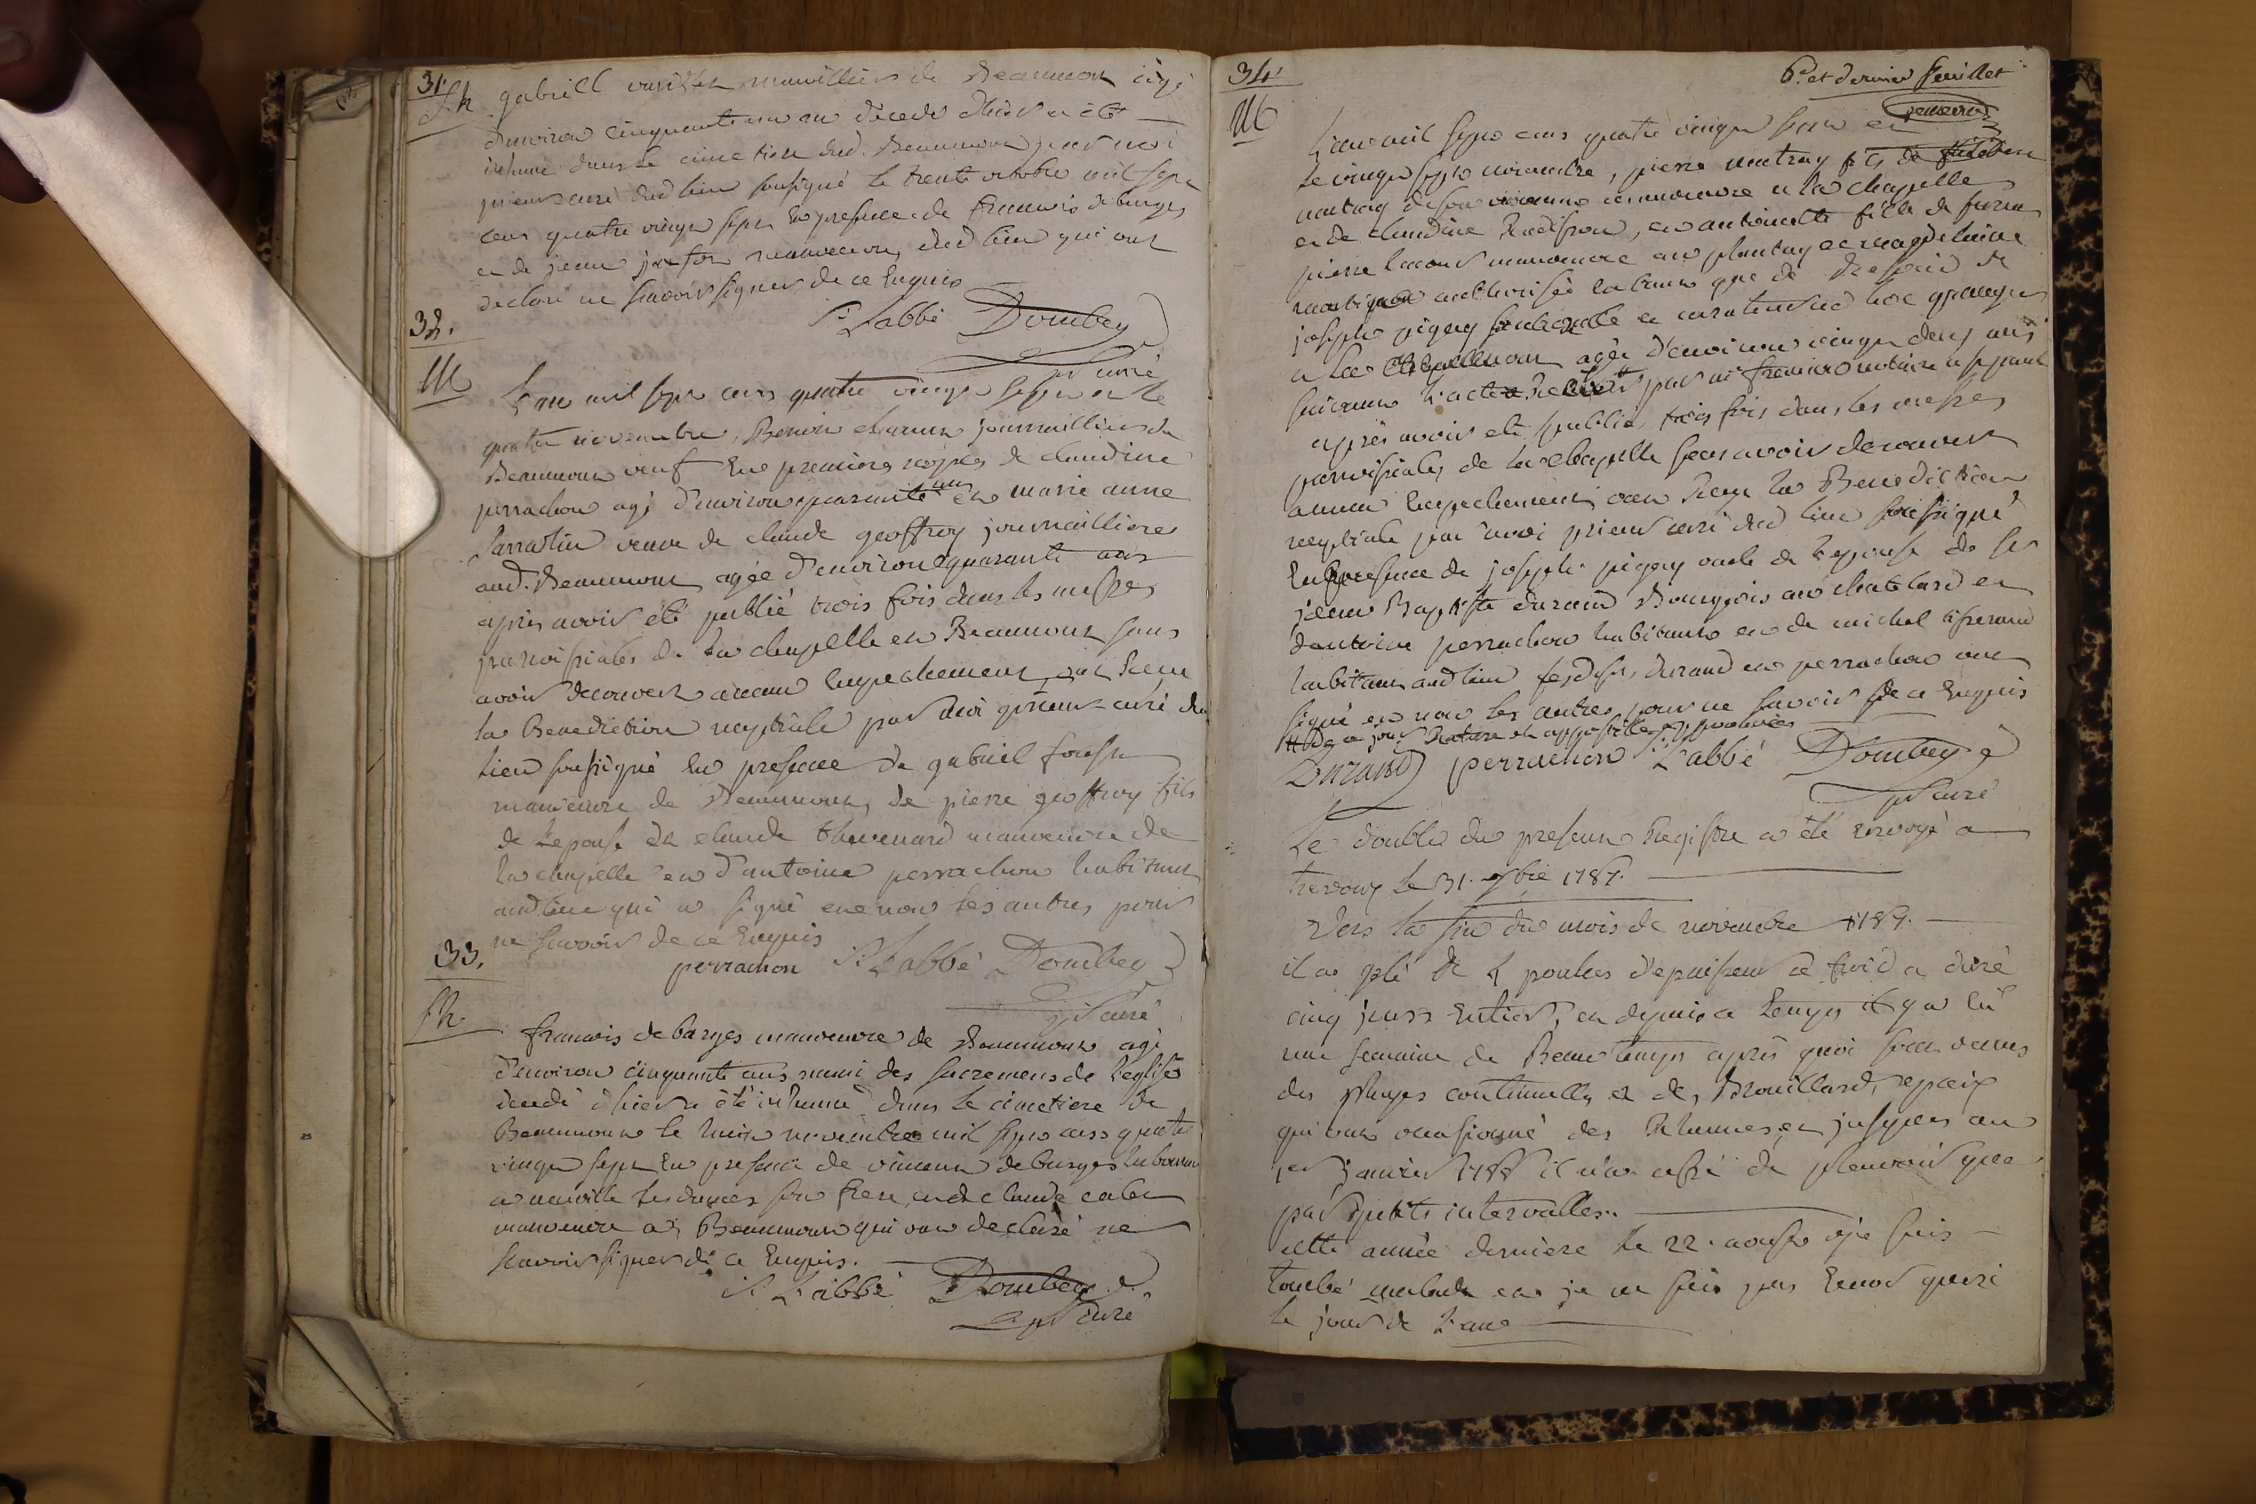 31.
Sh. gabriell marillier de Beaumont agé
d'environ cinquante un an decedé d'hier a été
inhumé dans le cimetiere dud. Beaumont par moi
prieur curé dud lieu sousigné le trente octobre mil sept
cens quatre vingt sept En presence de francois de barges
et de jean manoeuvre dud lieu qui ont
declaré ne scavoir signer de ce Enquis
S. L'abbé Dombey
pr curé
32.
M
L'an mil sept cens quatre vingt sept et le
quatre novembre, Benoit journaillier de
Beaumont veuf En premiere nopces de claudine
perrachon agé d'environ quarante un et marie anne
Sarrazin veuve de claude geoffroy journailliere
aud. Beaumont agée d'environ quarante ans
après avoir été publié trois fois dans les messes
paroissiales de la chapelle et Beaumont sans
avoir decouvert aucun Empechement, ont Recu
la Benediction nuptiale par moi prieur curé du
lieu sousigné En presence de gabriel
manoeuvre de Beaumont, de pierre geoffroy fils
de l'epouse de claude thevenard manoeuvre de
la chapelle et d'antoine perrachon habitant
aud lieu qui a signé et non les autres pour
ne scavoir de ce Enquis
perrachon S. L'abbé Dombey
pr curé
33.
Sh.
francois de barges manoeuvre de Beaumont agé
d'environ cinquante ans muni des sacremens de l'eglise
decedé d'hier a été inhumé dans le cimetiere de
Beaumont le huit novembre mil sept cens quatre
vingt sept En presence de vincent de barges laboureur
a neuville les dames son frere, et de claude
manoeuvre a Beaumont qui ont declaré ne
scavoir signer de ce Enquis.
S. L'abbé Dombey
pr curé
34.
6e et dernier feuillet
M
L'an mil sept cens quatre vingt sept et
le vingt sept novembre, pierre montray fils de
montray manoeuvre a la chapelle
et de claudine et antoinette fille de
pierre manoeuvre au plantay et magdelaine
authorisée
joseph pigery
a la agée d'environ vingt deux ans
suivant l'acte Recu par notaire
après avoir été publié trois fois dans les messes
paroissiales de la chapelle sans avoir decouvert
aucun Empechement ont Recu la Benediction
nuptiale par moi prieur curé dud lieu sousigné
En presence de joseph pigery oncle de l'epouse de sr
jean Baptiste durand Bourgeois au chatelard et
d'antoine perrachon habitant et de michel
habitant aud lieu lesdits durand et perrachon ont
signé et non les autres pour ne scavoir de ce Enquis
de ce jour Rature et appostille approuvées
Durand perrachon S. L'abbé Dombey
pr curé
Le double du present Registre a été Envoyé a
trevoux le 31. xbre 1787.
Vers la fin du mois de novembre 1787.
il a gelé de 4 pouces d'epaisseur ce froid a duré
cinq jours Entiers, et depuis ce temps il y a Eu
une semaine de Beau temps après quoi sont venus
des pluyes continuelles et des Brouillards epaix
qui ont occasionné des Rhumes et jusques au
1er janvier 1788 il n'a cessé de pleuvoir que
par petits intervalles.
cette année derniere le 22. aoust je suis
tombé malade et je ne suis pas Encor gueri
le jour de l'an